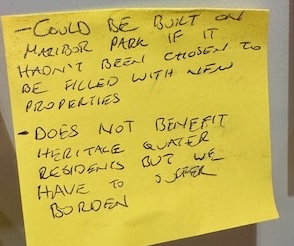 - COULD BE BUILT ON
MARIBOR PARK IF IT
HADN'T BEEN CHOSEN TO
BE FILLED WITH NEW
PROPERTIES
- DOES NOT BENEFIT
HERITAGE QUATER
RESIDENTS BUT WE
HAVE TO SUFFER
BORDEN